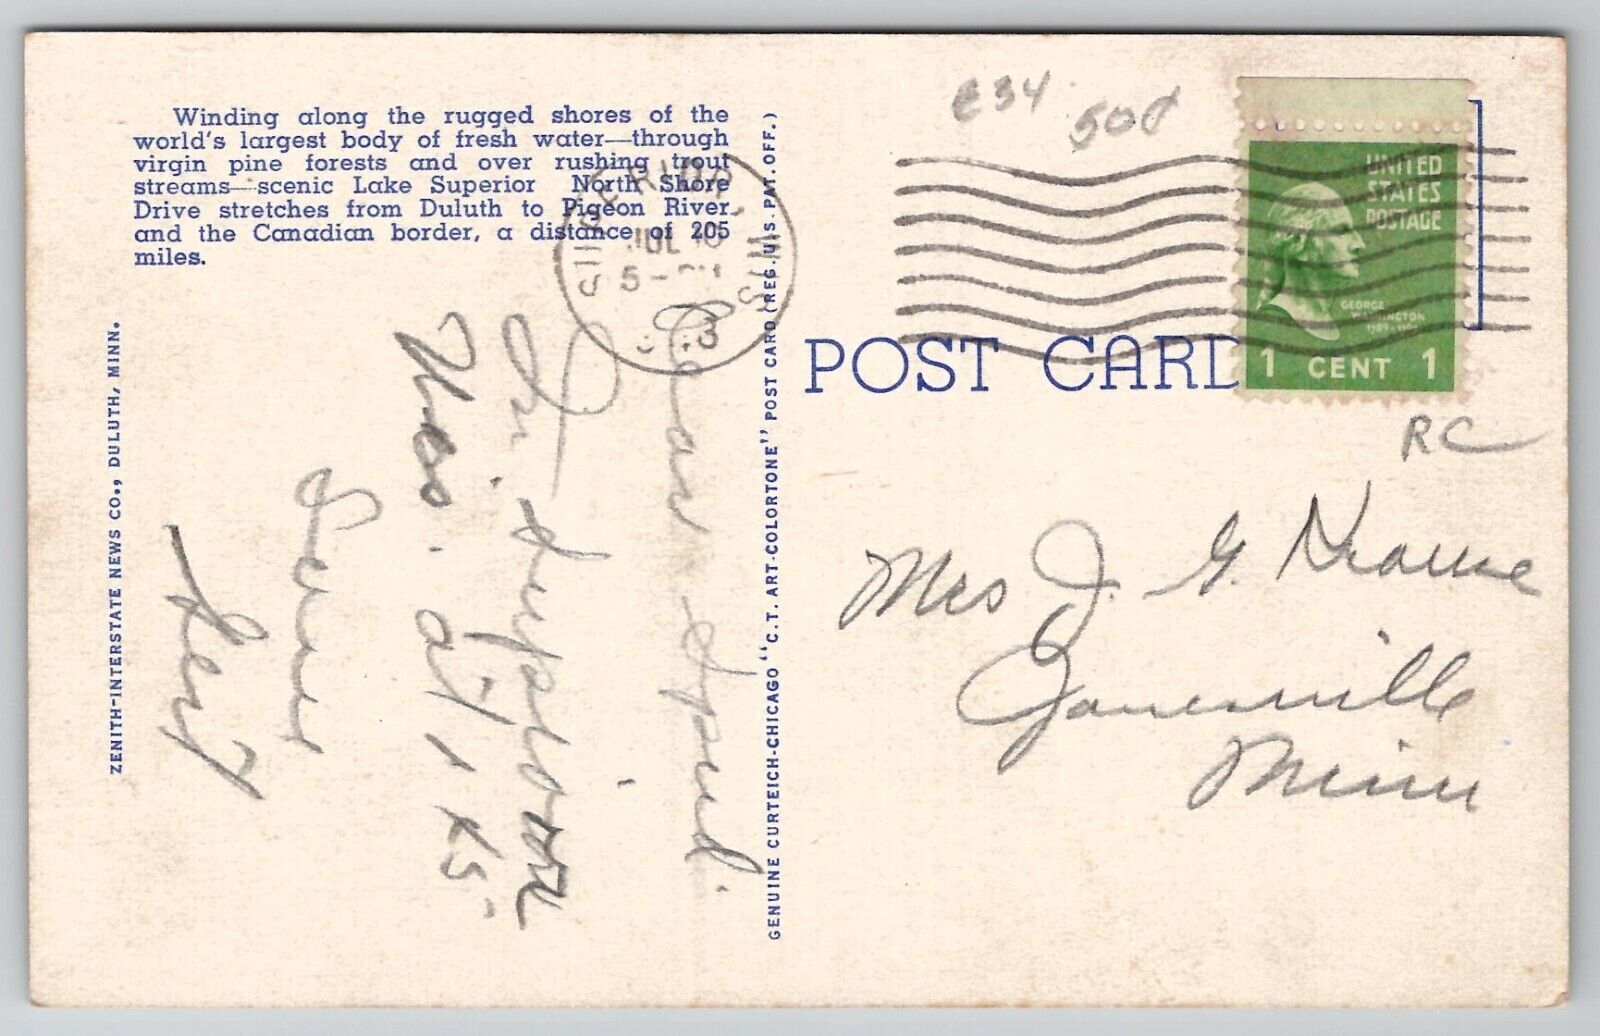 Winding along the rugged shores of the
world's largest body of fresh water—through
virgin pine forests and over rushing trout
streams—scenic Lake Superior North Shore
Drive stretches from Duluth to Pigeon River
and the Canadian border, a distance of 205
miles.
ZENITH-INTERSTATE NEWS CO., DULUTH, MINN.
GENUINE CURTEICH-CHICAGO "C.T. ART-COLORTONE" POST CARD (REG. U.S. PAT. OFF.)
POST CARD
e34
50¢
SUPERIOR, WIS.
JUL
5-
UNITED
STATES
POSTAGE
GEORGE
WASHINGTON
1 CENT 1
RC
Mrs J. G. Krause
Janesville
Minn
Dear
In Superior
Wis. at